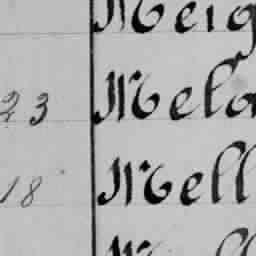 Meig
23 Mela
18 Mell